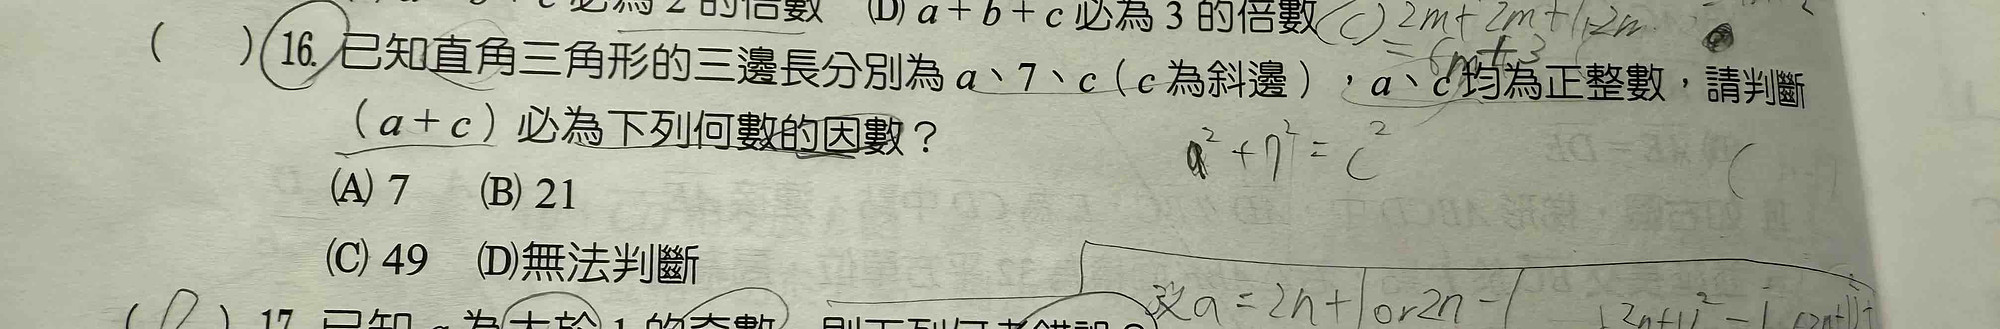 必為 2 的倍數 (D) a + b + c 必為 3 的倍數 (C) 2m+2m+1+2m
= 6m+3
( ) 16. 已知直角三角形的三邊長分別為 a、7、c（c 為斜邊），a、c 均為正整數，請判斷
（a + c）必為下列何數的因數？
a² + 7² = c²
(A) 7 (B) 21
(C) 49 (D)無法判斷
設 a = 2n+1 or 2n-1
( ) 17. 已知 a 為大於 1 的奇數